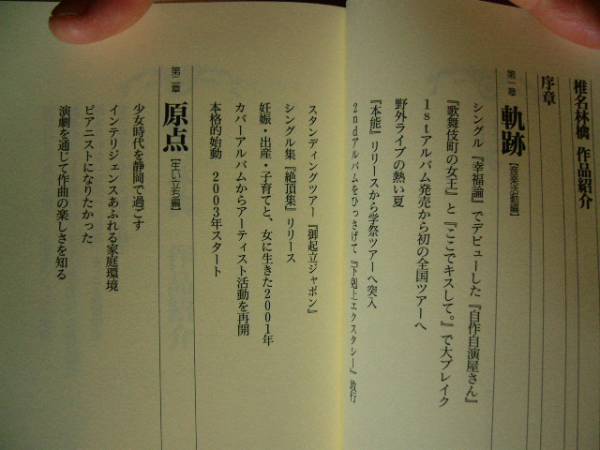 椎名林檎 作品紹介
序章
第一章 軌跡【音楽活動編】
シングル『幸福論』でデビューした『自作自演屋さん』
『歌舞伎町の女王』と『ここでキスして。』で大ブレイク
1stアルバム発売から初の全国ツアーへ
野外ライブの熱い夏
『本能』リリースから学祭ツアーへ突入
2ndアルバムをひっさげて『下剋上エクスタシー』敢行
スタンディングツアー『御起立ジャポン』
シングル集『絶頂集』リリース
妊娠・出産・子育てと、女に生きた2001年
カバーアルバムからアーティスト活動を再開
本格的始動 2003年スタート
第二章 原点【生い立ち編】
少女時代を静岡で過ごす
インテリジェンスあふれる家庭環境
ピアニストになりたかった
演劇を通じて作曲の楽しさを知る